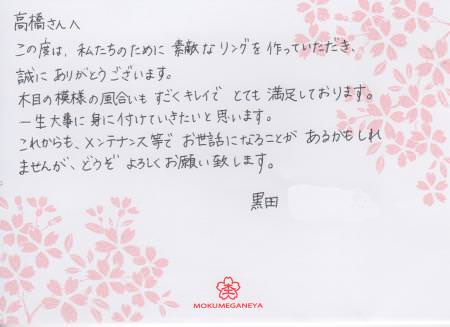 高橋さんへ
この度は、私たちのために素敵なリングを作っていただき、
誠にありがとうございます。
木目の模様の風合いもすごくキレイでとても満足しております。
一生大事に身に付けていきたいと思います。
これからも、メンテナンス等でお世話になることがあるかもしれ
ませんが、どうぞよろしくお願い致します。
黒田
MOKUMEGANEYA